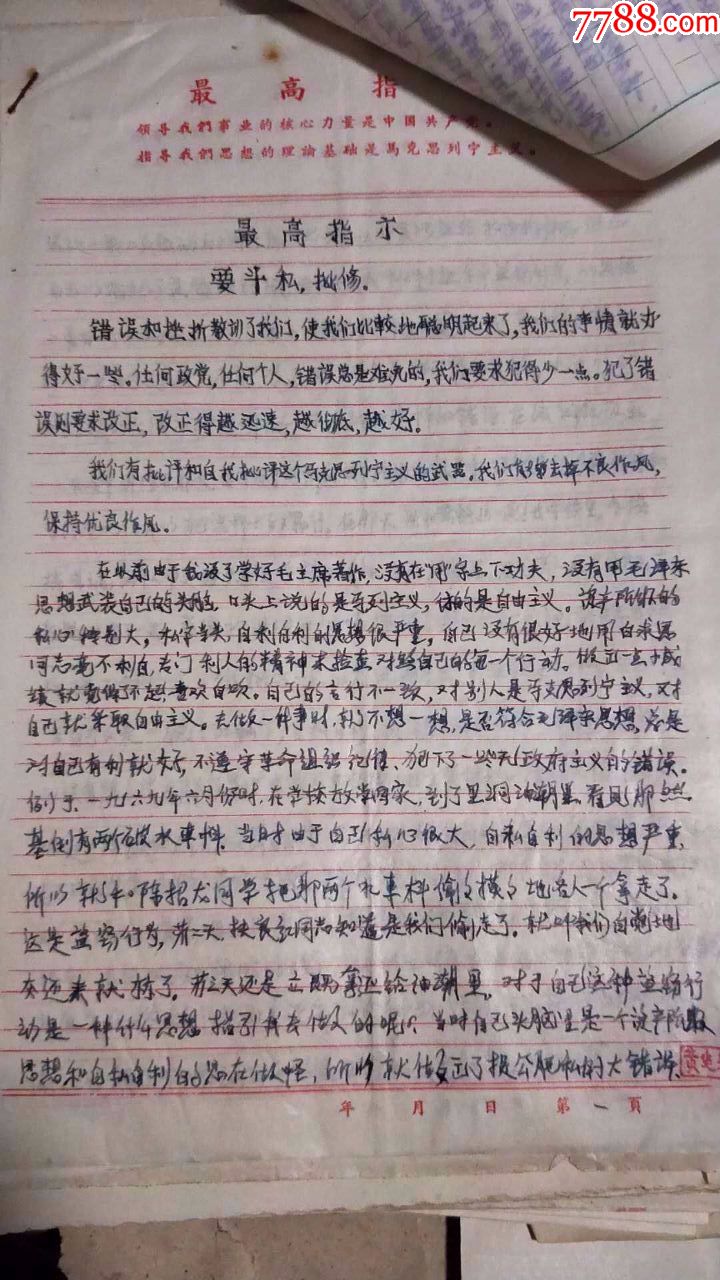 7788.com
最高指
领导我們事业的核心力量是中国共产党。
指导我們思想的理論基础是馬克思列宁主义。
最高指示
要斗私，批修。
错误和挫折教训了我们，使我们比較地聪明起来了，我们的事情就办
得好一些。任何政党，任何个人，错误总是难免的，我们要求犯得少一点。犯了错
误则要求改正，改正得越迅速，越彻底，越好。
我们有批评和自我批评这个马克思列宁主义的武器。我们能够去掉不良作风，
保持优良作风。
在以前由于我没了学好毛主席著作，没有在"用"字上下功夫，没有用毛泽东
思想武装自己的头脑，口头上说的是马列主义，做的是自由主义。
私心特别大，私字当头，自私自利的思想很严重，自己没有很好地用白求恩
同志毫不利己专门利人的精神来检查对照自己的每一个行动。做立一点小成
绩就觉得了不起，喜欢自吹。自己的言行不一致，对别人是马克思列宁主义，对
自己就采取自由主义。去做一件事时，就不想一想，是否符合毛泽东思想，总是
对自己有利就好，不遵守革命组织纪律，犯下了一些无政府主义的错误。
一九六九年六月份时，在学校放学回家，到了里洞油朝里，看見那
基倒有两个破水車料，当时由于自己私心很大，自私自利的思想严重，
所以就和陈招龙同学把那两个水車料偷偷摸摸地各人一个拿走了。
这是盗窃行为，第二天同志知道是我们偷走了。就叫我们自觉地
交还来就掂了。第三天还是立即拿还给油朝里。对于自己这种盗窃行
动是一种什么思想指引我去做的呢？当时自己头脑里是一个资产阶级
思想和自私自利的思在做怪，所以就做出了损公肥私的大错误。
年 月 日 第一頁